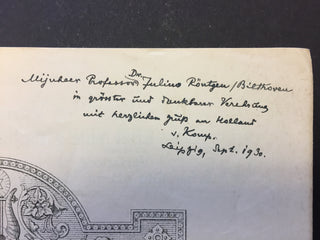 Mijnheer Professor Dr. Julius Röntgen / Bilthoven
in grösster und dankbarer Verehrung
mit herzlichem Gruß an Holland
v. Komp.
Leipzig, Sept. 1930.